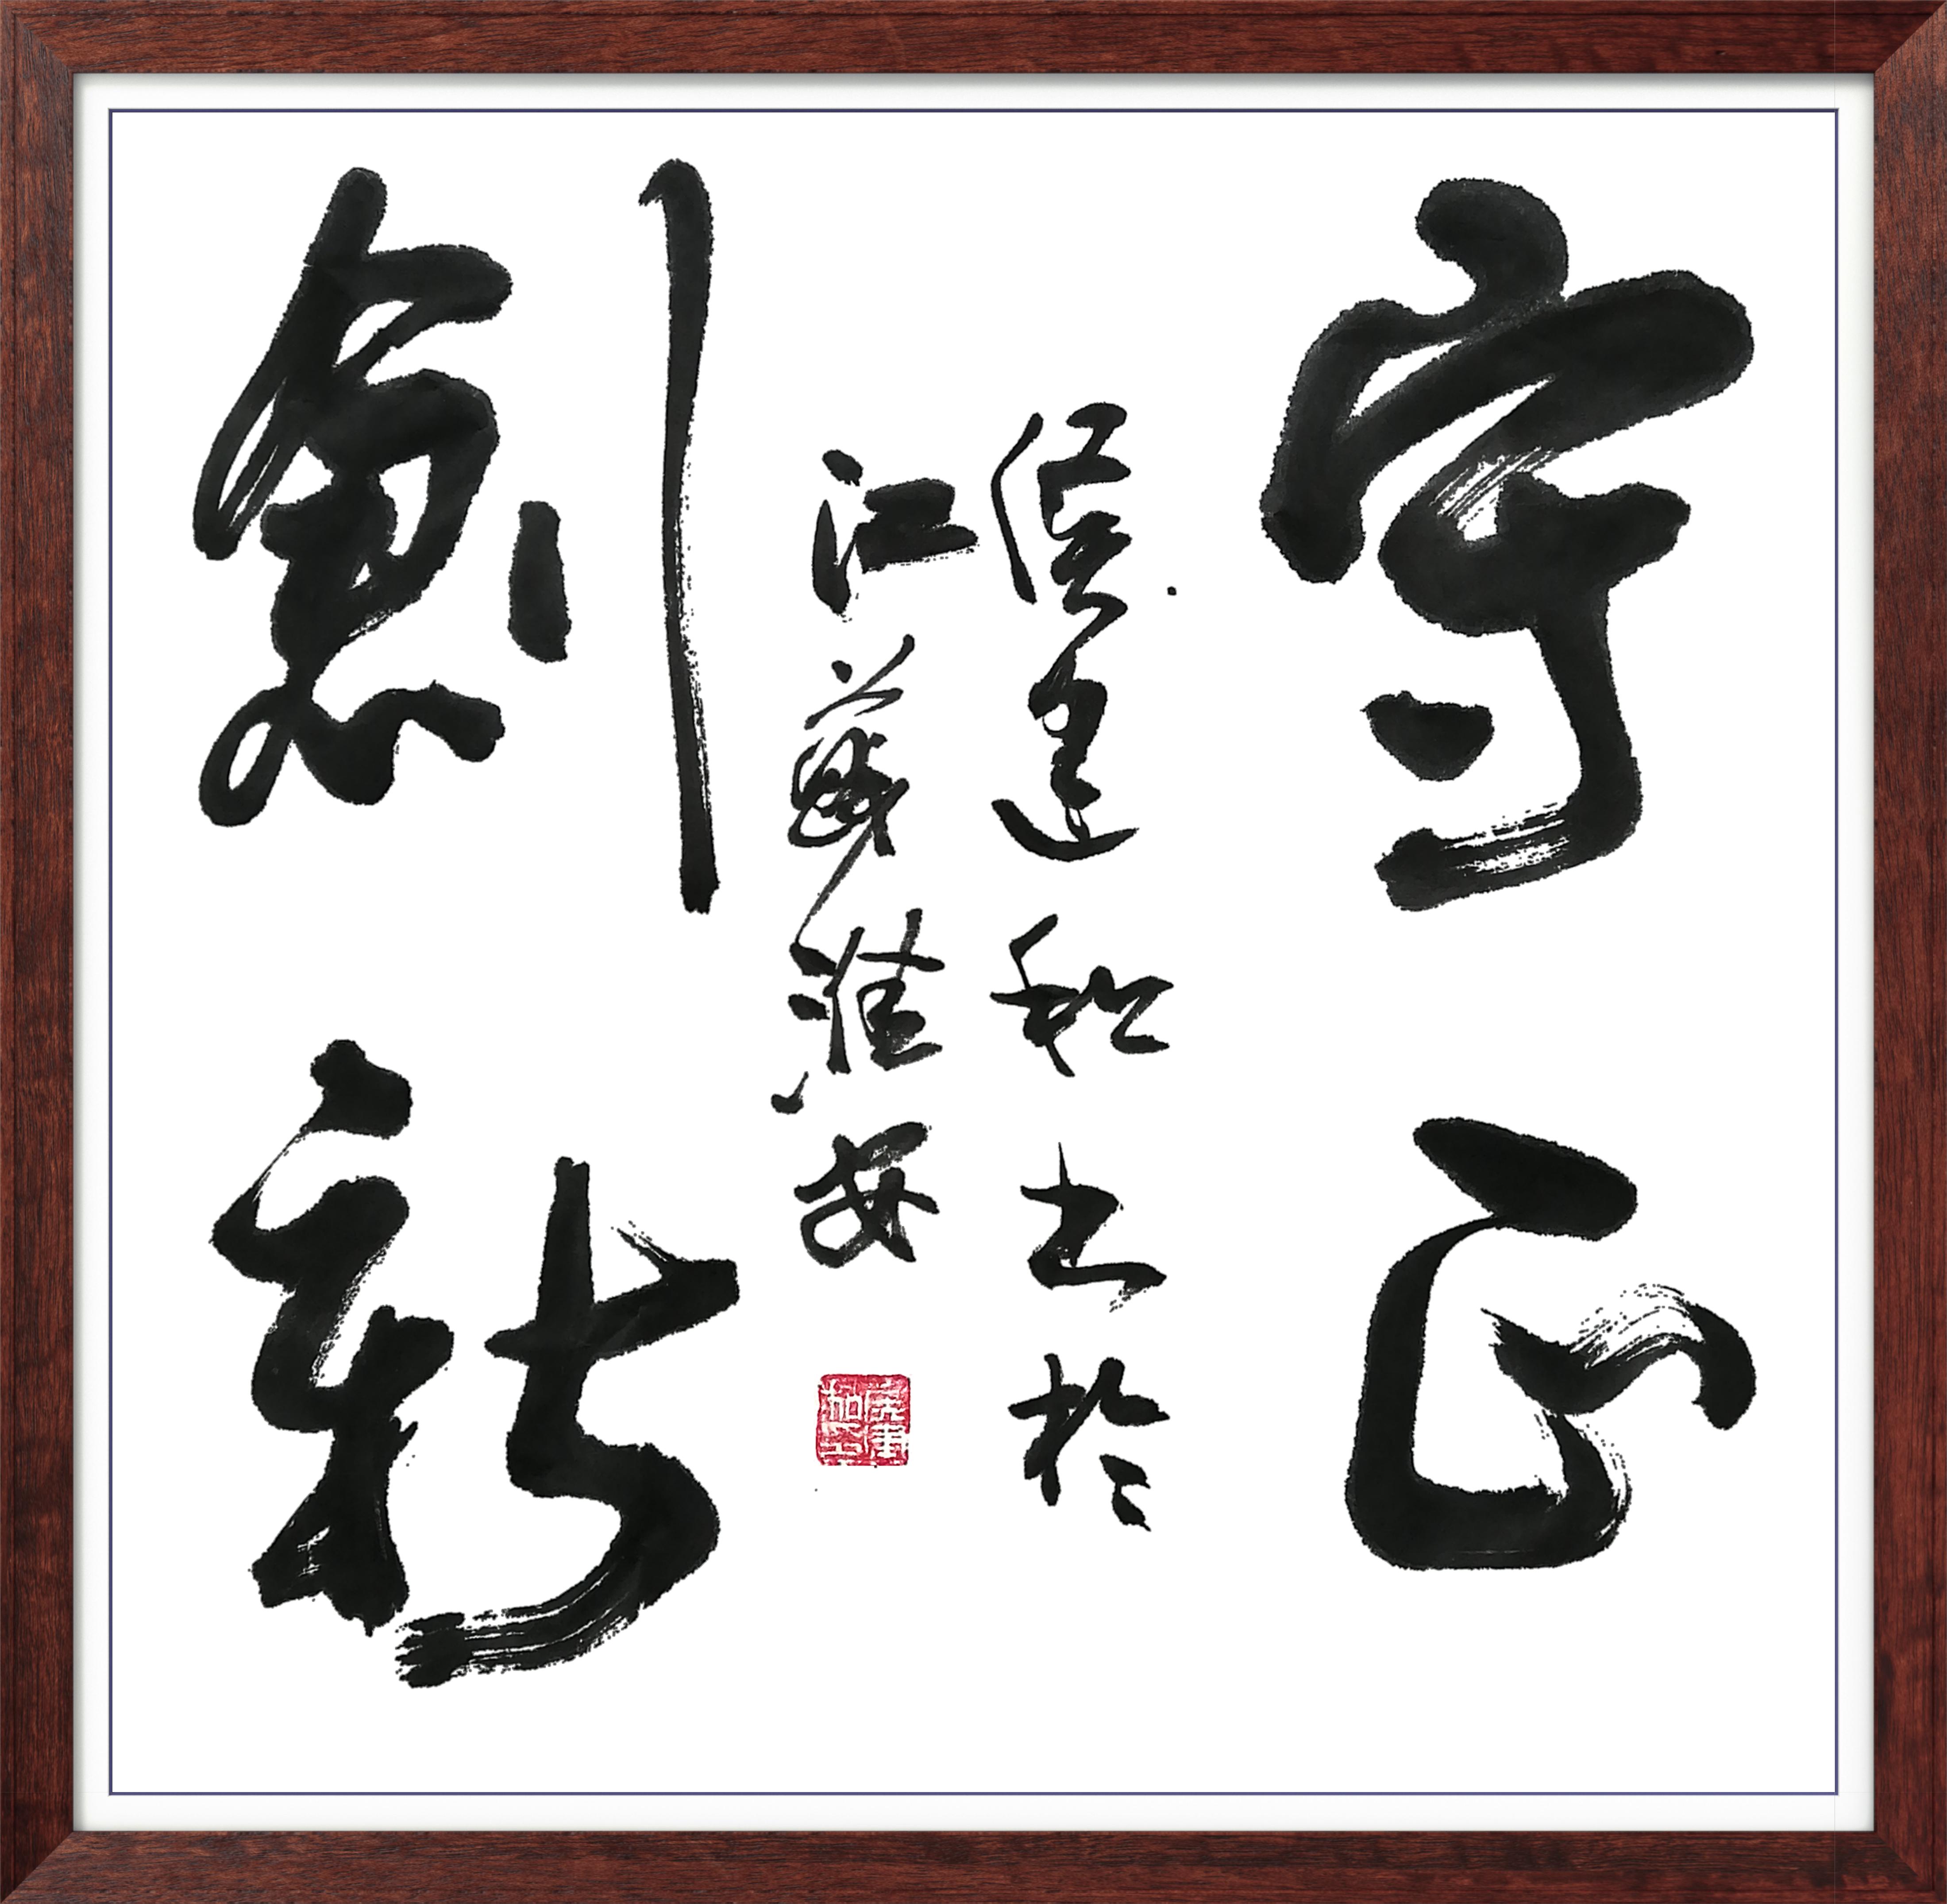 守正
創新
侯建和书於
江蘇淮安